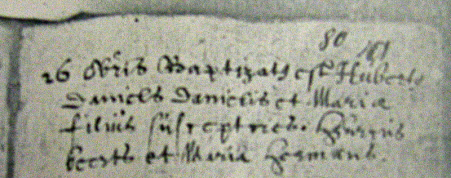 80 101
26 8bris Baptizatus est Huberts
Daniels Danielis et Maria
filius susceptores. Henricus
Geerts et Maria Hermans.